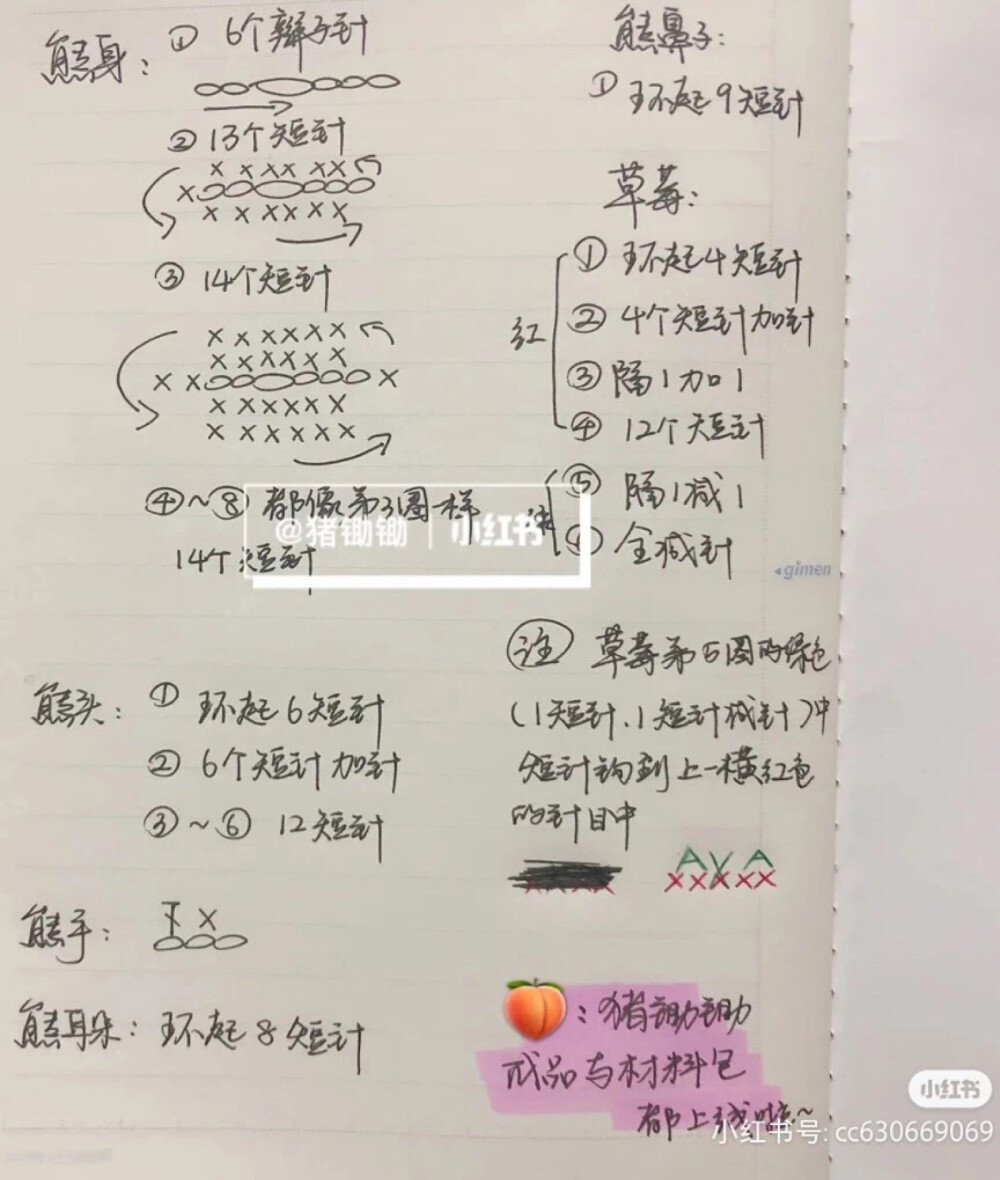 熊身：① 6个辫子针
② 13个短针
③ 14个短针
④～⑧ 都像第3圈一样
14个短针
熊头：① 环起6短针
② 6个短针加针
③～⑥ 12短针
熊手：
熊耳朵：环起8短针
熊鼻子：
① 环起9短针
草莓：
红
① 环起4短针
② 4个短针加针
③ 隔1加1
④ 12个短针
⑤ 隔1减1
全减针
注 草莓第5圈的绿色
（1短针、1短针减针）中
短针钩到上一横红色
的针目中
：猪锄锄
成品与材料包
都上线啦～
@猪锄锄 | 小红书
gimen
小红书
小红书号: cc630669069